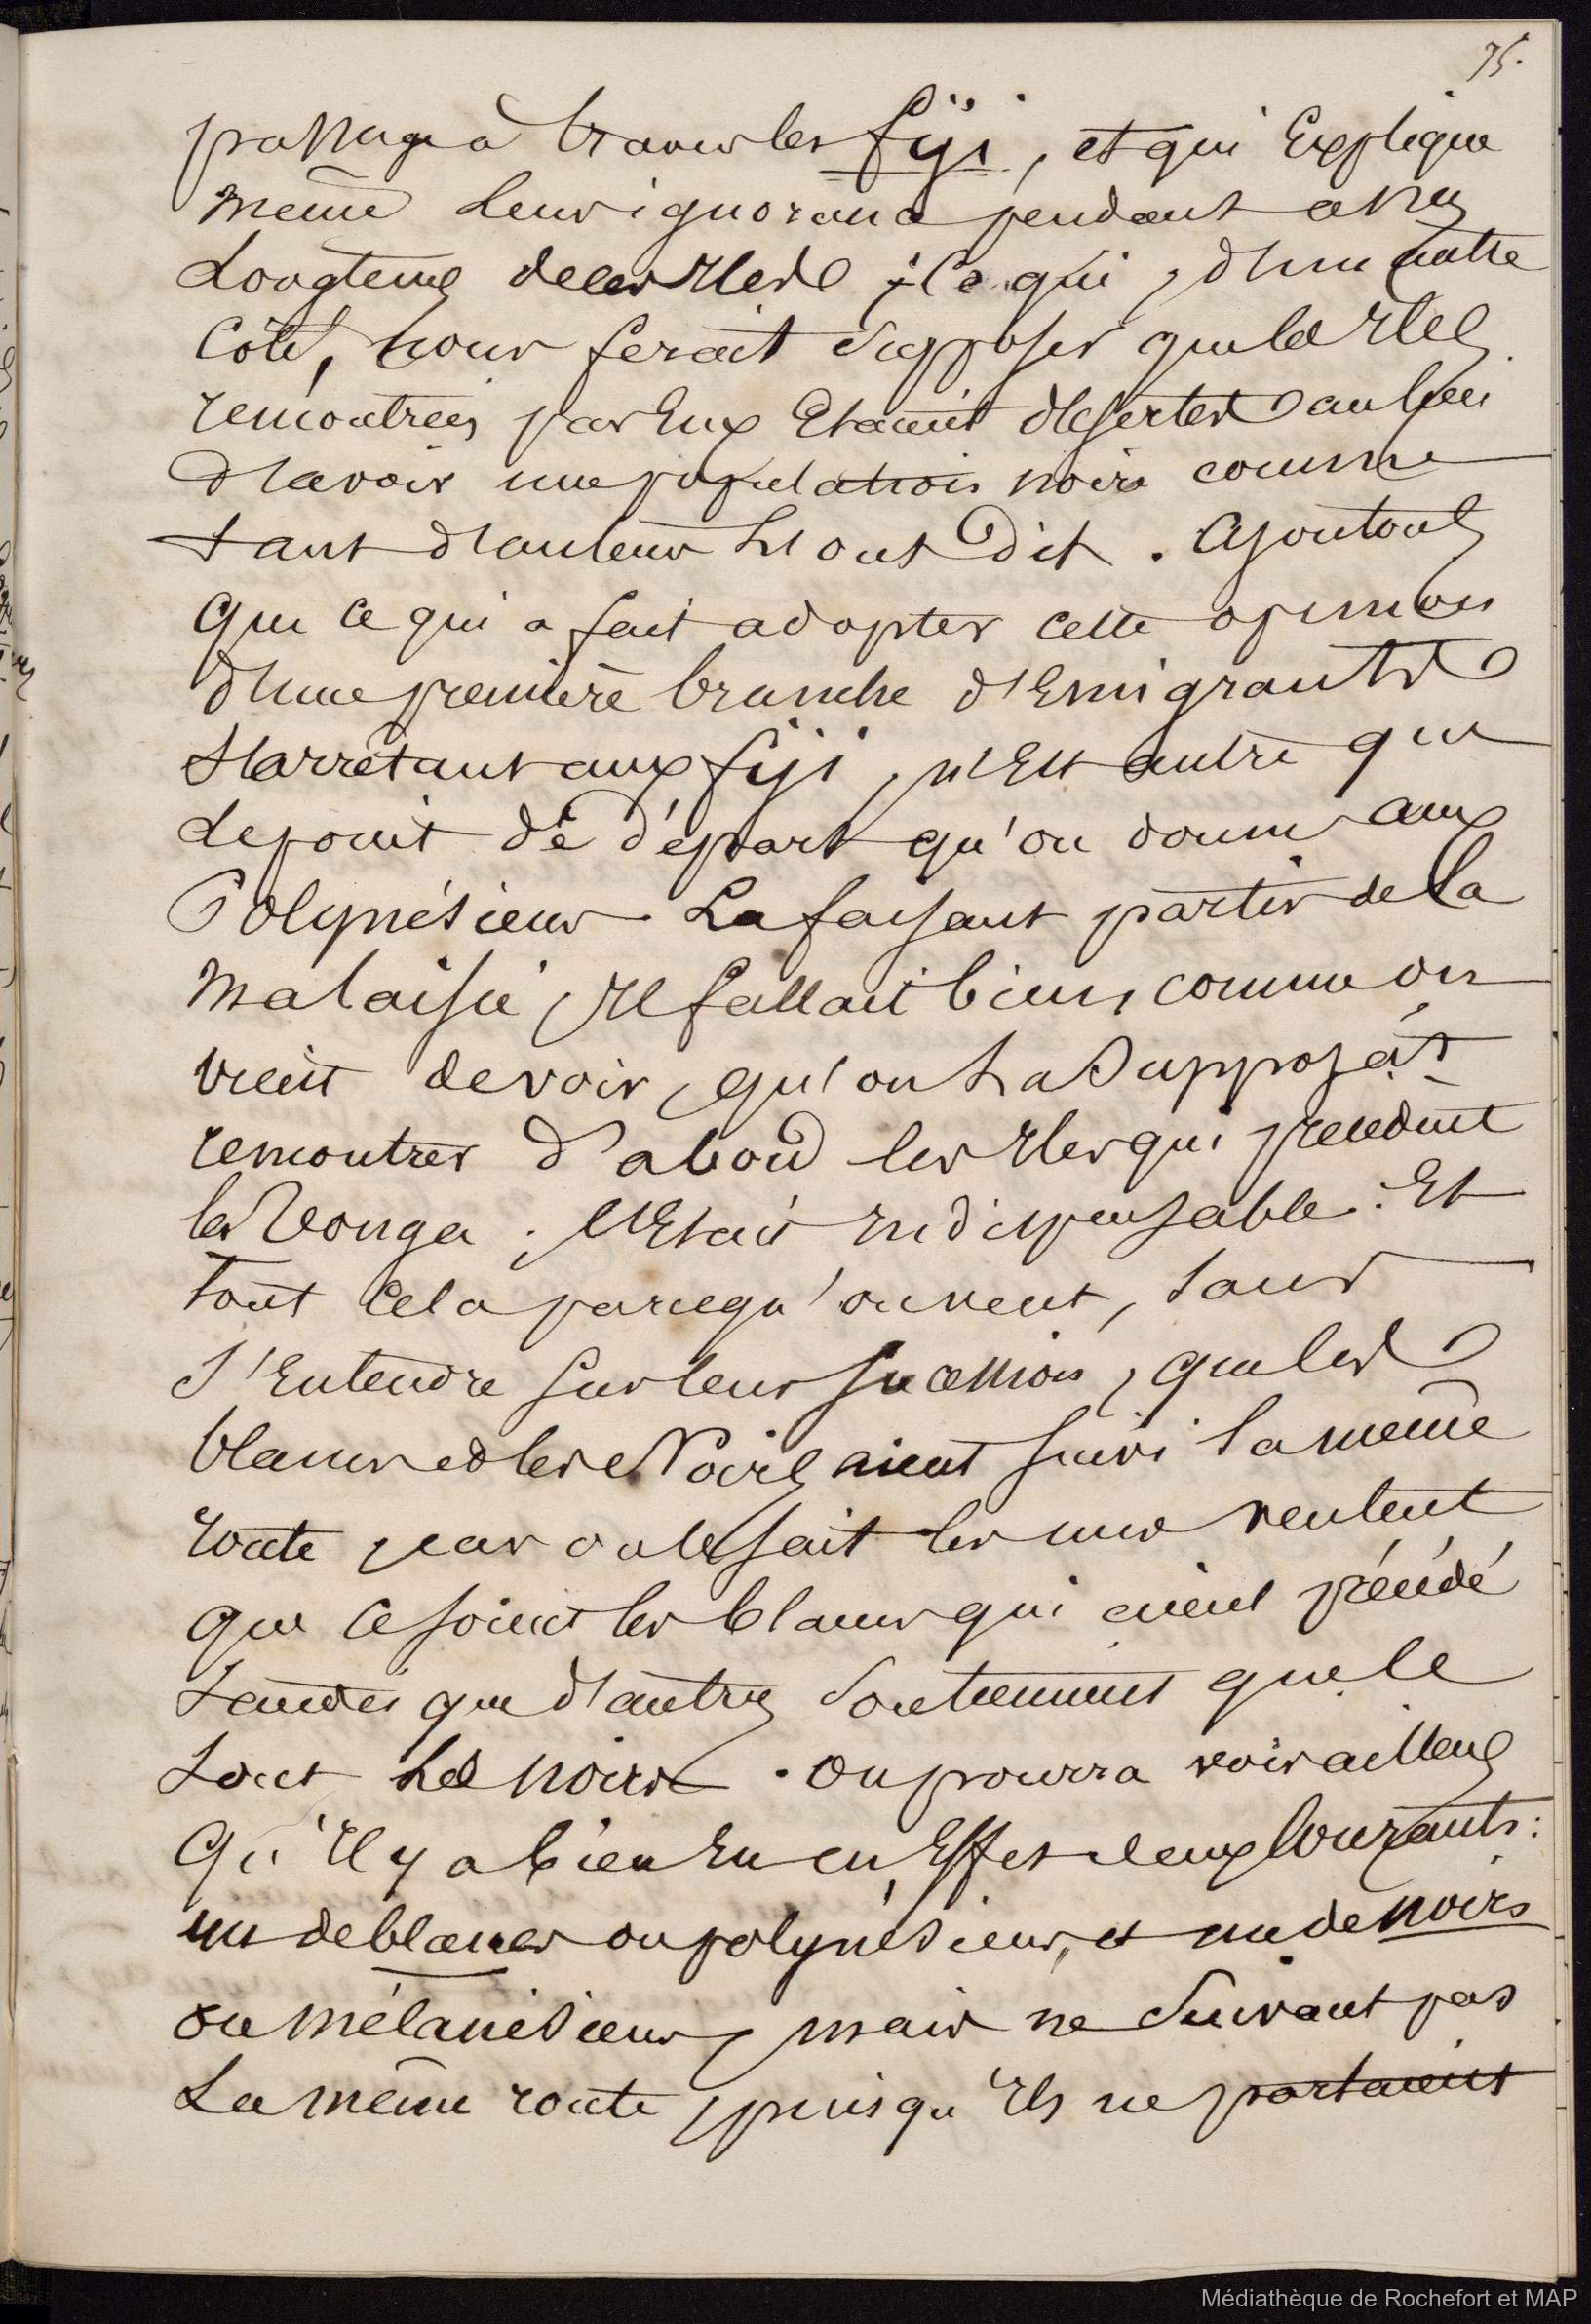 75.
passage à travers les Fiji, et qui Explique
même leur ignorance pendant assez
Longtems de ces Iles ; Ce qui, d'un autre
Côté, nous ferait supposer que les Iles
rencontrées par Eux Etaient désertes au lieu
d'avoir une population noire comme
tant d'auteurs L'ont dit. Ajoutons
que ce qui a fait adopter cette opinion
d'une première branche d'Emigrants
s'arrêtant aux Fiji, n'Est autre que
le point de départ qu'on donne aux
Polynésiens. Les faisant partir de la
malaisie, Il fallait bien, comme on
vient de voir, qu'on La Supposât
rencontrer d'abord les Iles qui précèdent
les Tonga ; C'Etait Indispensable. Et
tout cela parcequ'on veut, sans
s'Entendre sur leur succession, que les
blancs et les Noirs aient suivi la même
route, car on le sait les uns veulent
que ce soient les blancs qui aient précédé
tandis que d'autres soutiennent que ce
sont Les noirs. on pourra voir ailleurs
qu'Il y a bien Eu en Effet deux Courants :
un de blancs ou polynésiens, et un de noirs
ou mélanésiens, mais ne suivant pas
La même route, puisqu'Ils ne partaient
Médiathèque de Rochefort et MAP